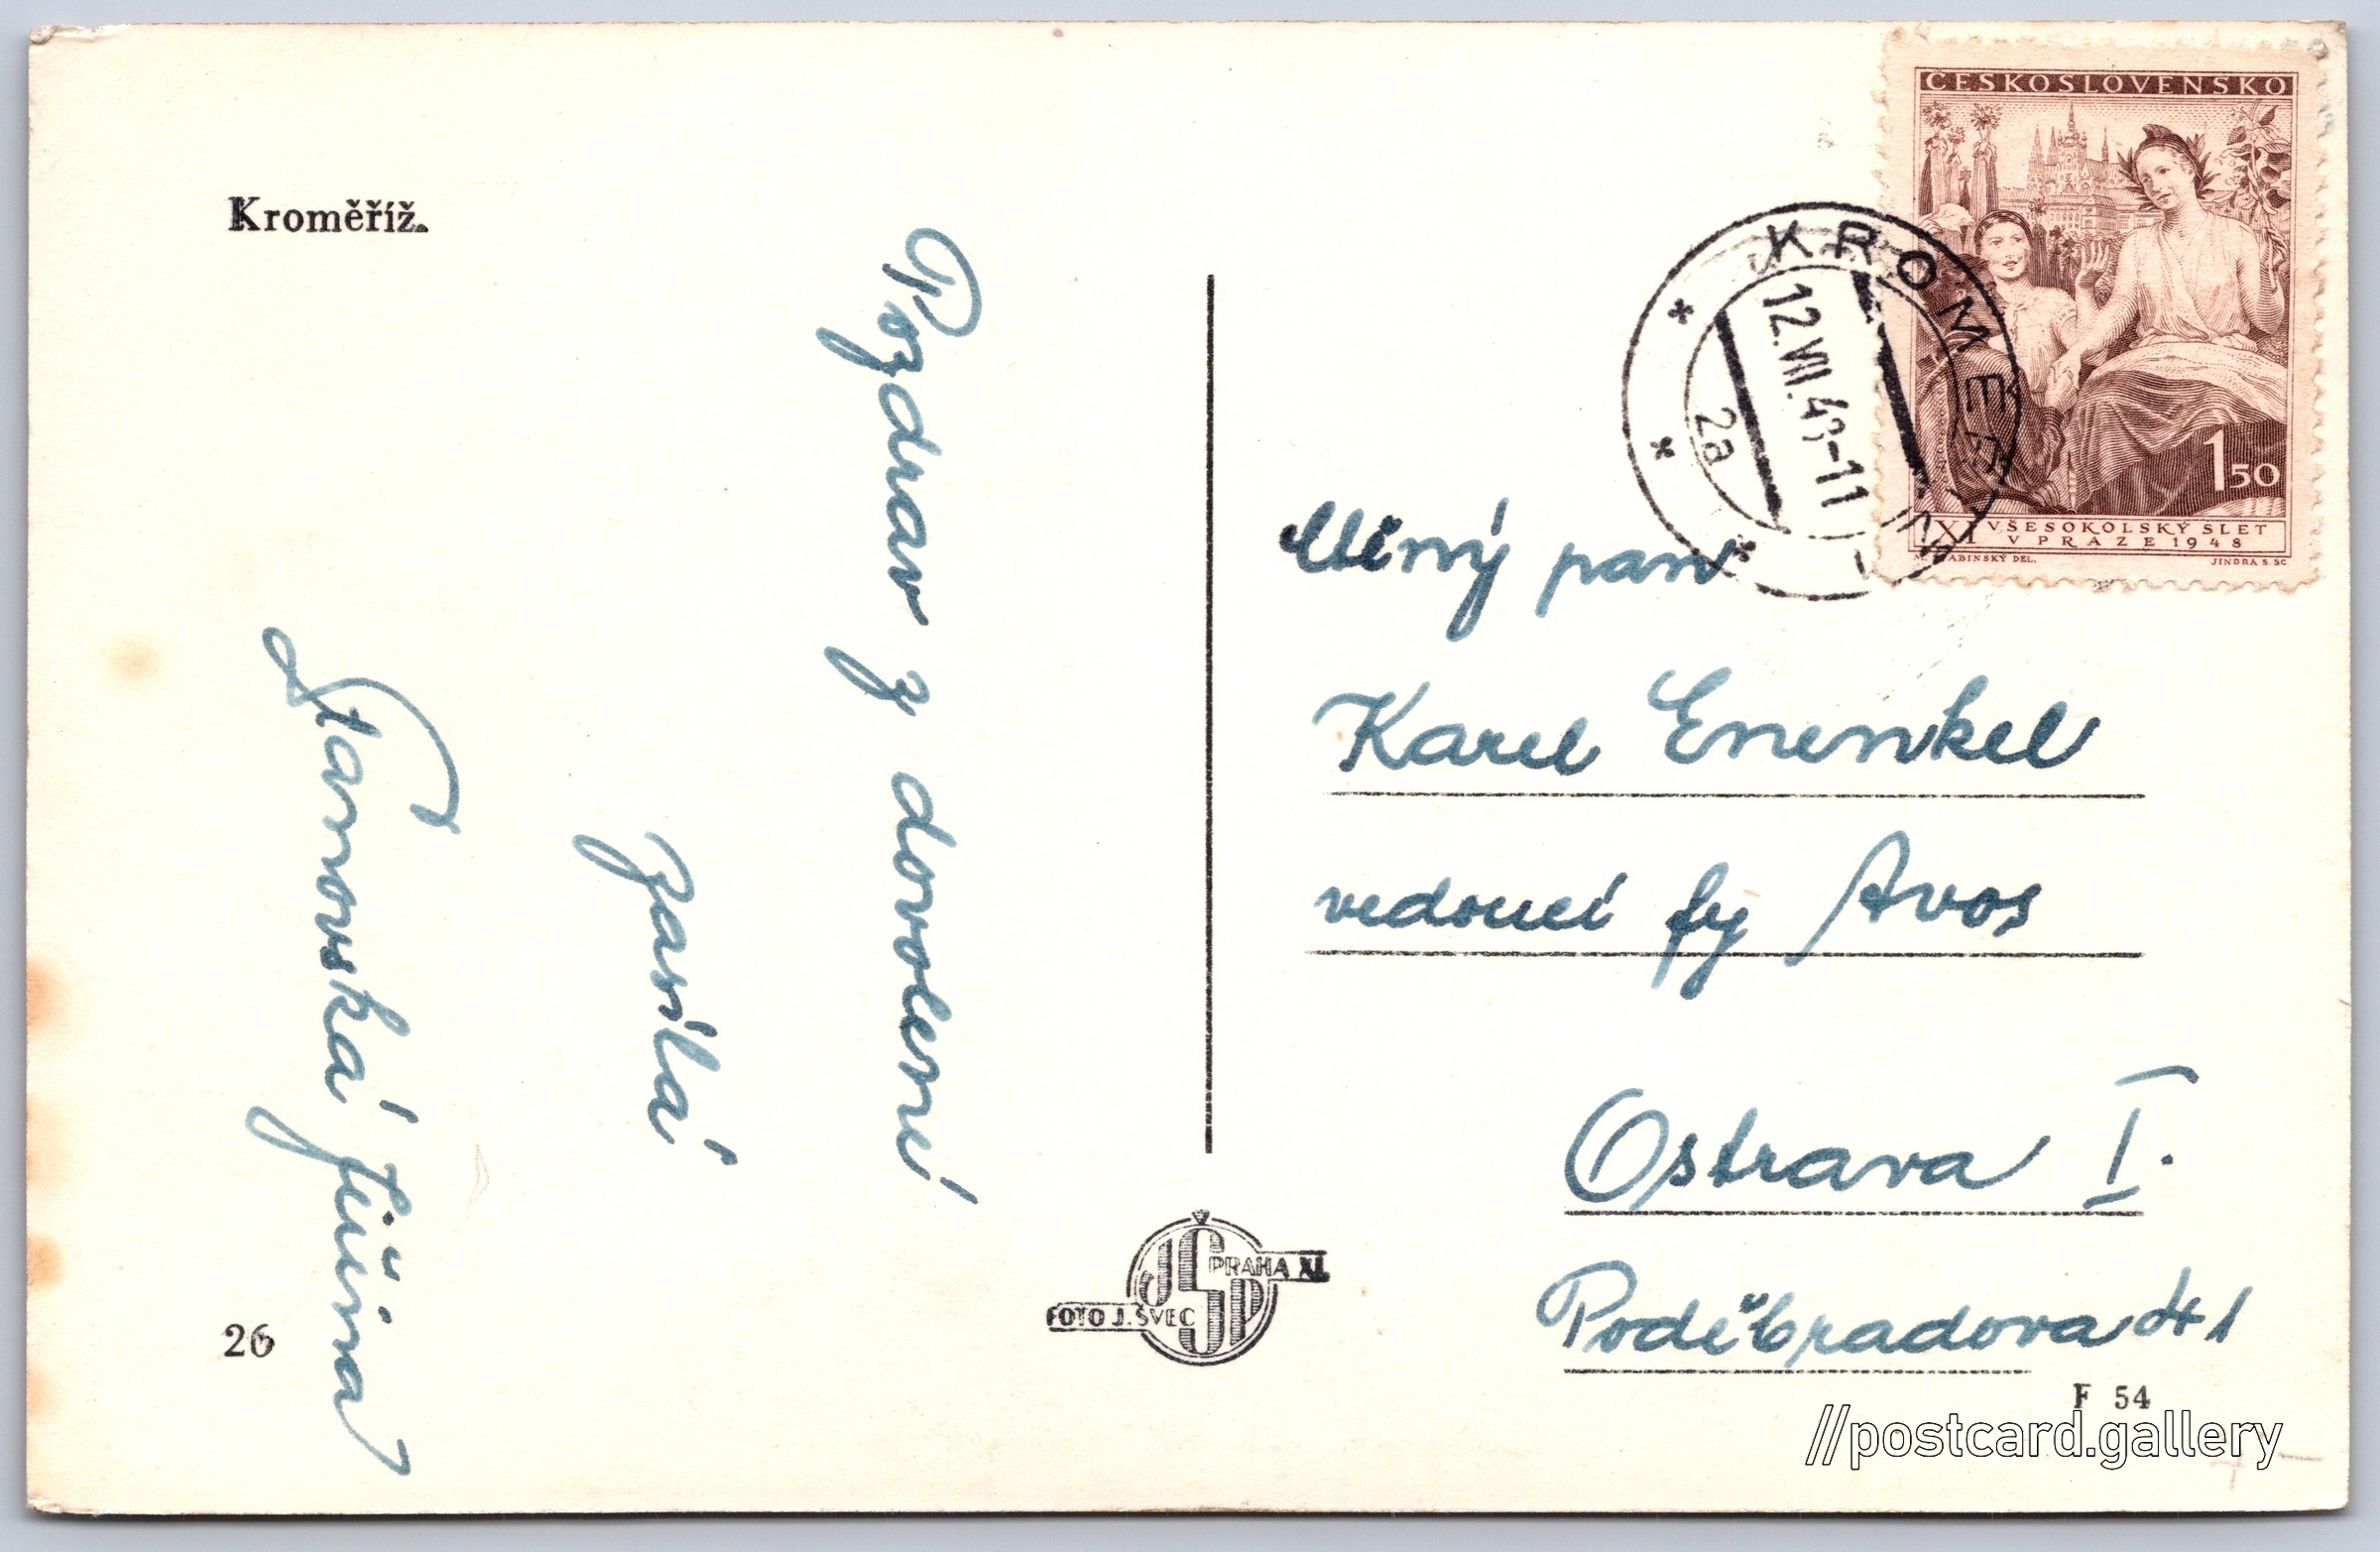 Kroměříž.
Pozdrav z dovolení
zasílá
Starovská Jiřina
26
FOTO J. ŠVEC
PRAHA XI.
JŠP
ČESKOSLOVENSKO
1 50
XI. VŠESOKOLSKÝ SLET
V PRAZE 1948
JINDRA S. SC.
KROMĚŘÍŽ
12.VII.48-11
2a
Ctěný pan
Karel Enenkel
vedoucí fy Avos
Ostrava I.
Poděbradova 41
F 54
//postcard.gallery